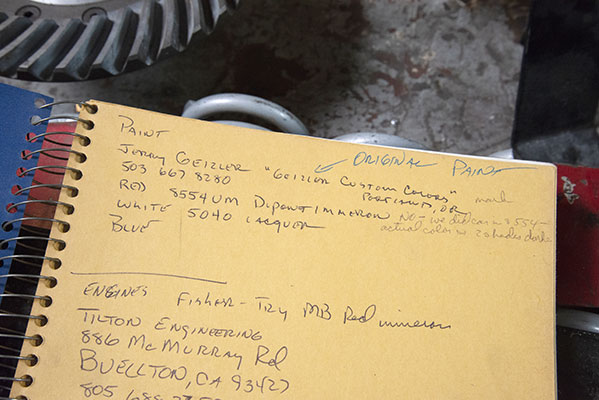 PAINT
ORIGINAL PAINT
JERRY GEIZLER "GEIZLER CUSTOM COLORS" mark
503 667 8280 PORTLAND, OR
RED 8554UM DUPONT IMMERON NO - we did car w 8554 -
WHITE 5040 LACQUER actual color is 2 shades dark
BLUE
ENGINES FISHER - TRY MB Red
TILTON ENGINEERING
886 McMURRAY Rd
BUELLTON, CA 93427
805 688